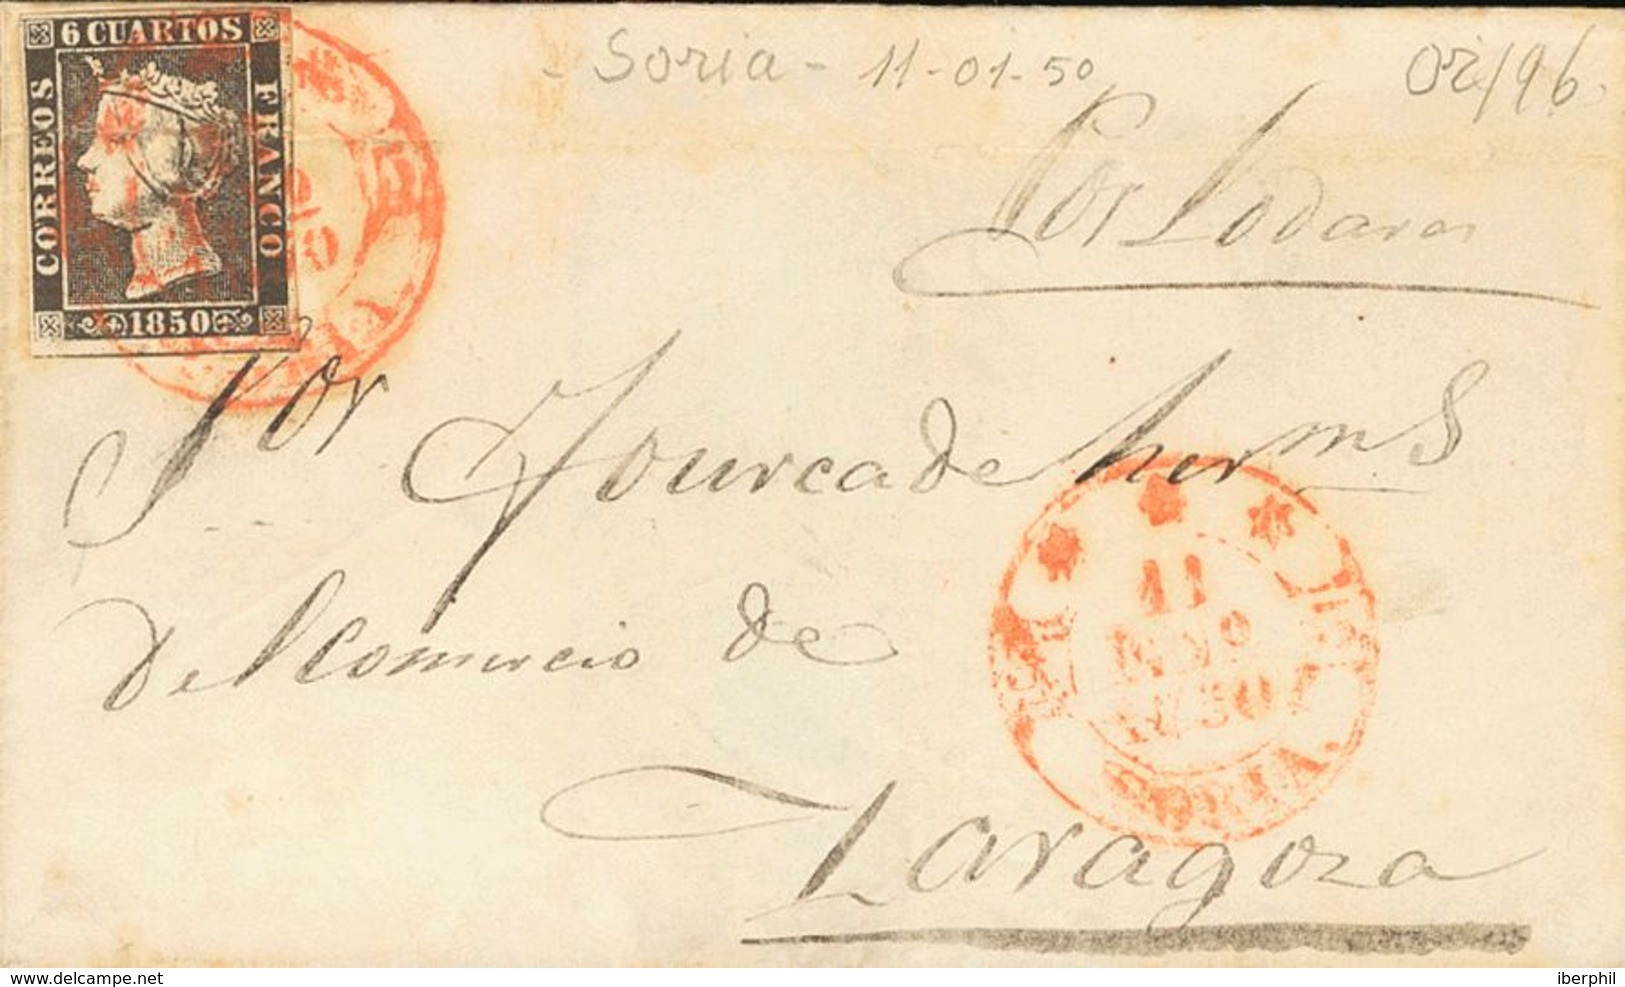 6 CUARTOS
CORREOS
FRANCO
1850
- Soria - 11-01-50
Por Lodares
Sor Jourcade herms
Del Comercio de
Zaragoza
11
ENO
1850
SORIA.
delcampe.net
iberphil